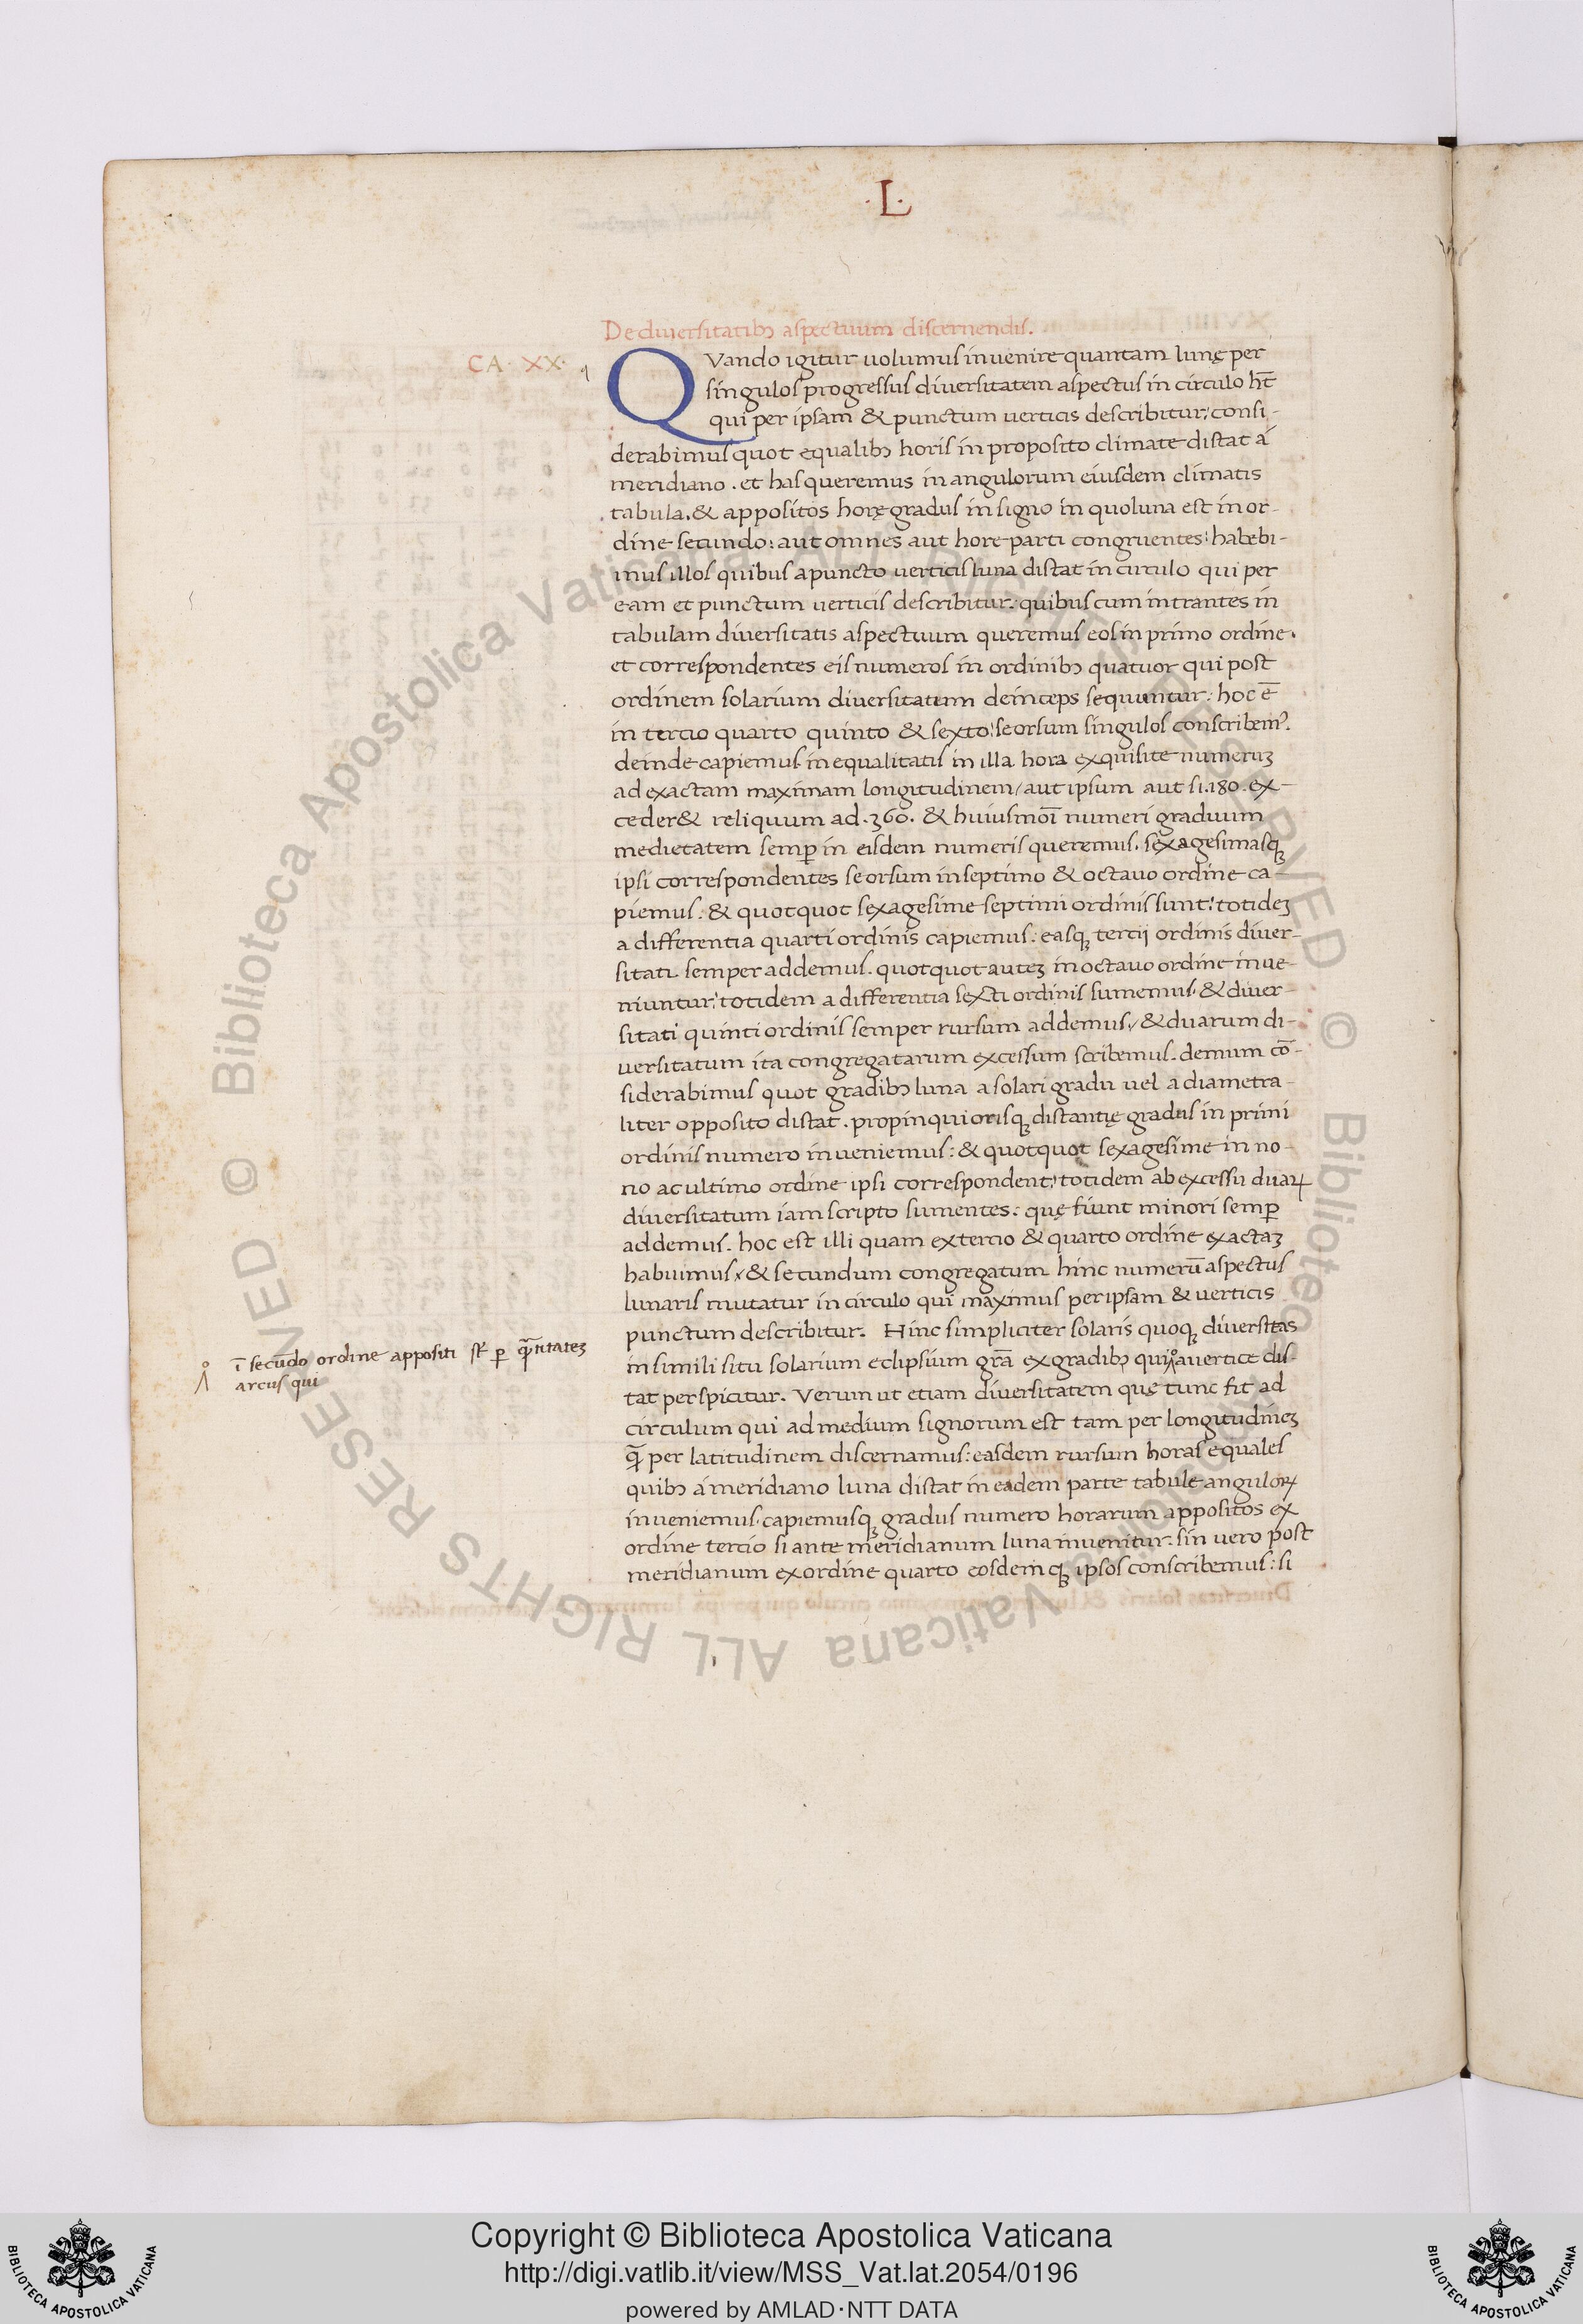 ·L·
De diuersitatibꝫ aspectuum discernendis.
CA· XX·
Quando igitur uolumus inuenire quantam lunę per
singulos progressus diuersitatem aspectus in circulo hr̄
qui per ipsam & punctum uerticis describitur: consi-
derabimus quot equalibꝫ horis in proposito climate distat á
meridiano. et has queremus in angulorum eiusdem climatis
tabula. & appositos horę gradus in signo in quo luna est in or-
dine secundo: aut omnes aut hore parti congruentes: habebi-
mus illos quibus a puncto uerticis luna distat in circulo qui per
eam et punctum uerticis describitur. quibus cum intrantes in
tabulam diuersitatis aspectuum queremus eos in primo ordine.
et correspondentes eis numeros in ordinibꝫ quatuor qui post
ordinem solarium diuersitatum deinceps sequuntur: hoc ē
in tercio quarto quinto & sexto: seorsum singulos conscribemꝰ.
deinde capiemus inequalitatis in illa hora exquisite numerūꝫ
ad exactam maximam longitudinem / aut ipsum aut si .180. ex-
ceder& reliquum ad .360. & huiusmoī numeri graduum
medietatem semꝑ in eisdem numeris queremus. sexagesimasqꝫ
ipsi correspondentes seorsum in septimo & octauo ordine ca-
piemus: & quotquot sexagesime septimi ordinis sunt: totideꝫ
a differentia quarti ordinis capiemus: easqꝫ tercij ordinis diuer-
sitati semper addemus. quotquot auteꝫ in octauo ordine inue-
niuntur: totidem a differentia sexti ordinis sumemus. & diuer-
sitati quinti ordinis semper rursum addemus, & duarum di-
uersitatum ita congregatarum excessum scribemus. demum cō-
siderabimus quot gradibꝫ luna a solari gradu uel a diametra-
liter opposito distat. propinquiorisqꝫ distantię gradus in primi
ordinis numero inueniemus: & quotquot sexagesime in no-
no ac ultimo ordine ipsi correspondent: totidem ab excessu duaꝝ
diuersitatum iam scripto sumentes: quę fiunt minori semꝑ
addemus. hoc est illi quam ex tercio & quarto ordine exactaꝫ
habuimus, & secundum congregatum hinc numerū aspectus
lunaris mutatur in circulo qui maximus per ipsam & uerticis
punctum describitur. Hinc simpliciter solaris quoqꝫ diuersitas
in simili situ solarium eclipsium grā ex gradibꝫ qui a uertice dis-
tat perspicitur. Verum ut etiam diuersitatem quę tunc fit ad
circulum qui ad medium signorum est tam per longitudineꝫ
q̄ per latitudinem discernamus: easdem rursum horas equales
quibꝫ á meridiano luna distat in eadem parte tabule anguloꝝ
inueniemus. capiemusqꝫ gradus numero horarum appositos ex
ordine tercio si ante meridianum luna inuenitur. sin uero post
meridianum ex ordine quarto eosdemqꝫ ipsos conscribemus: si
ī secūdo ordine appositi st̄ ꝑ q̄titateꝫ
arcus qui
Biblioteca Apostolica Vaticana ALL RIGHTS RESERVED © Biblioteca Apostolica Vaticana ALL RIGHTS RESERVED ©
Copyright © Biblioteca Apostolica Vaticana
http://digi.vatlib.it/view/MSS_Vat.lat.2054/0196
powered by AMLAD·NTT DATA
BIBLIOTECA APOSTOLICA VATICANA
BIBLIOTECA APOSTOLICA VATICANA